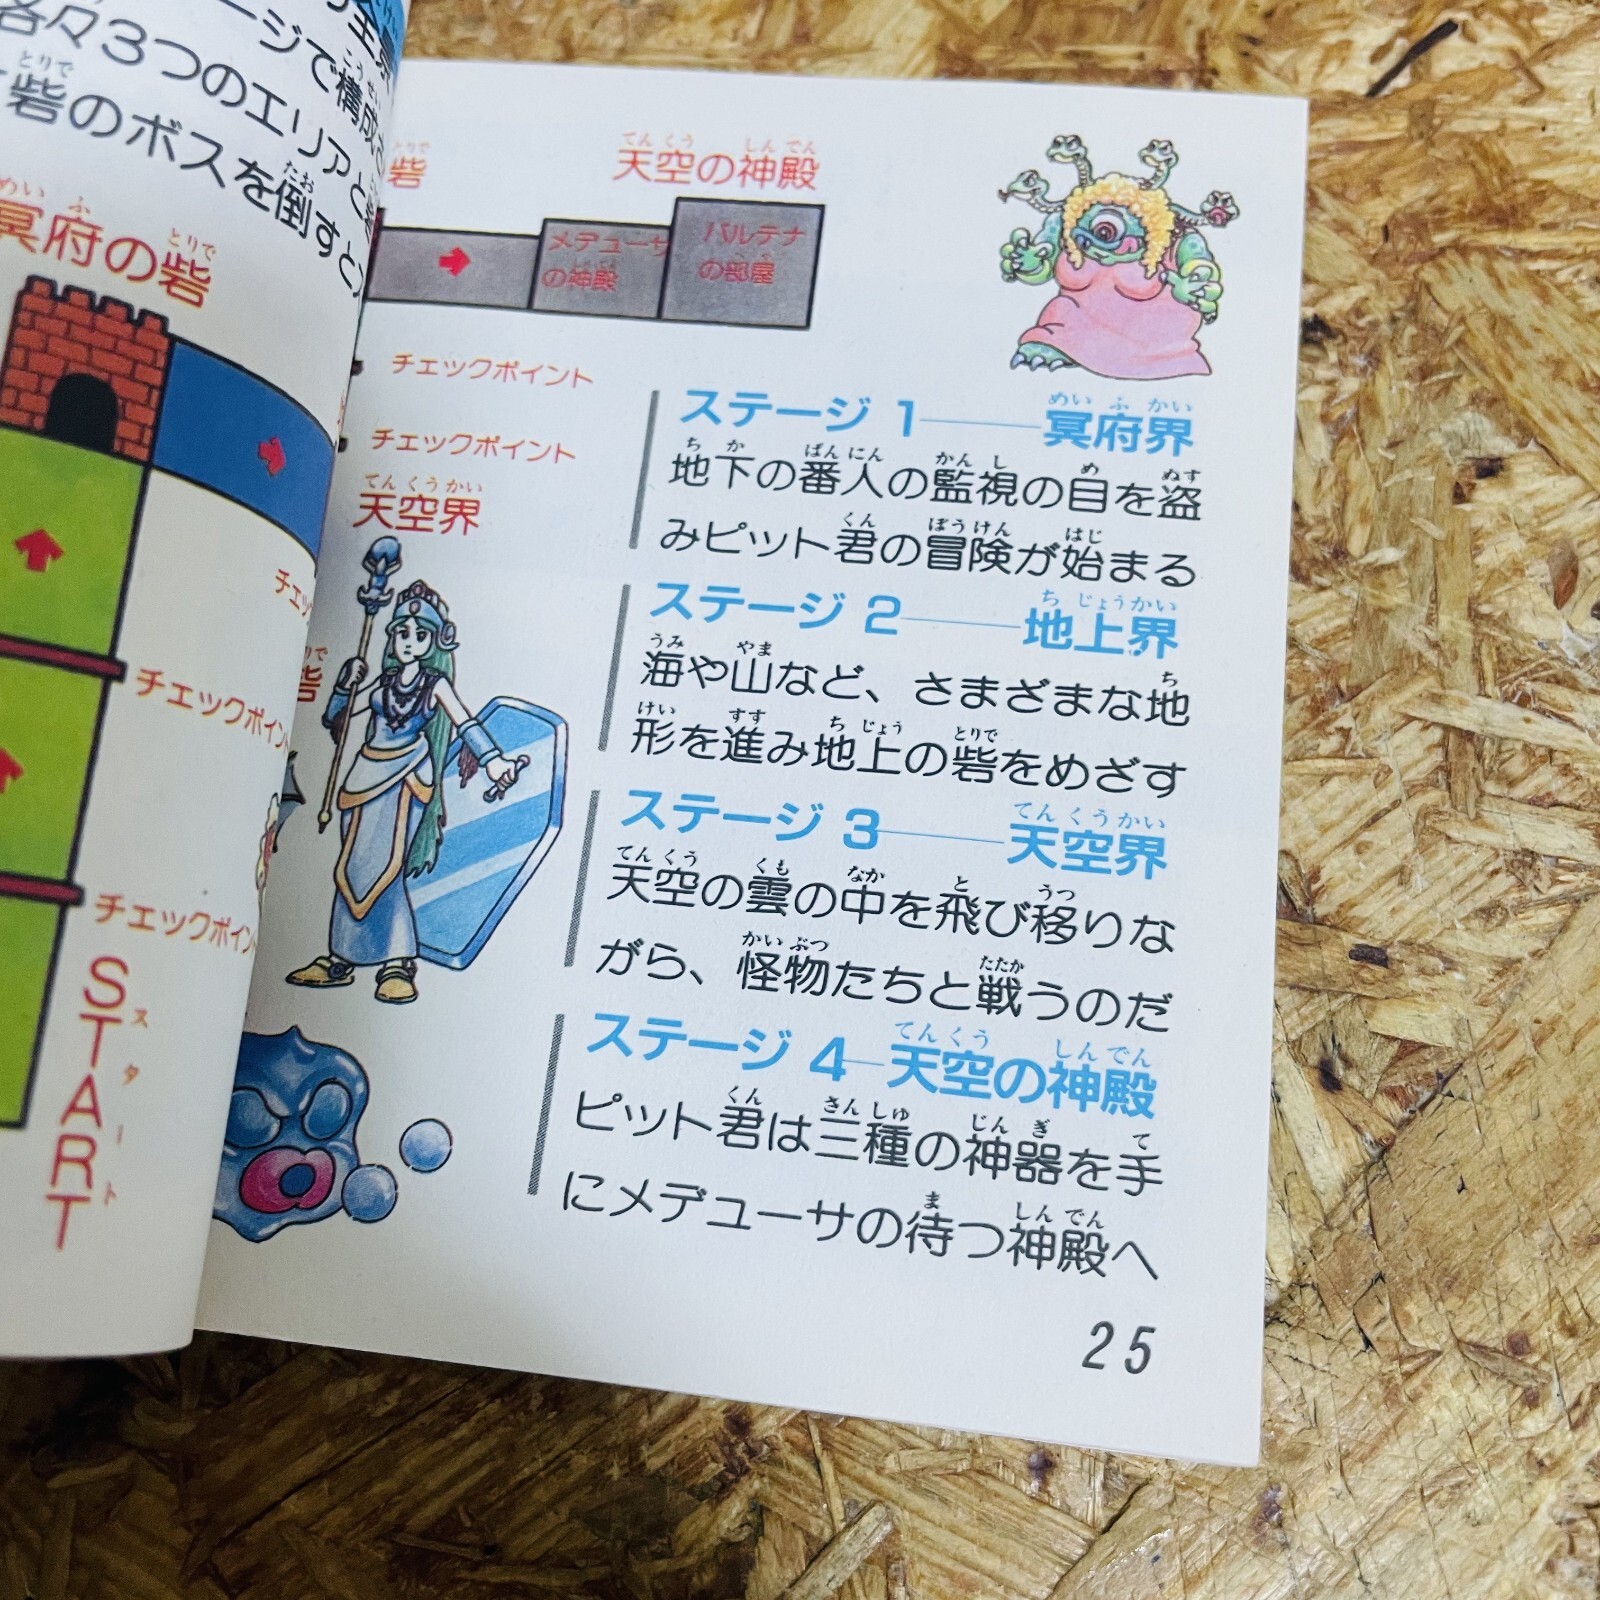 ージで構成
各々3つのエリアと
砦のボスを倒すと
冥府の砦
チェックポイント
チェックポイント
START
スタート
砦
天空の神殿
メデューサ
の神殿
パルテナ
の部屋
チェックポイント
チェックポイント
天空界
砦
ステージ 1――冥府界
地下の番人の監視の目を盗
みピット君の冒険が始まる
ステージ 2――地上界
海や山など、さまざまな地
形を進み地上の砦をめざす
ステージ 3――天空界
天空の雲の中を飛び移りな
がら、怪物たちと戦うのだ
ステージ 4―天空の神殿
ピット君は三種の神器を手
にメデューサの待つ神殿へ
25